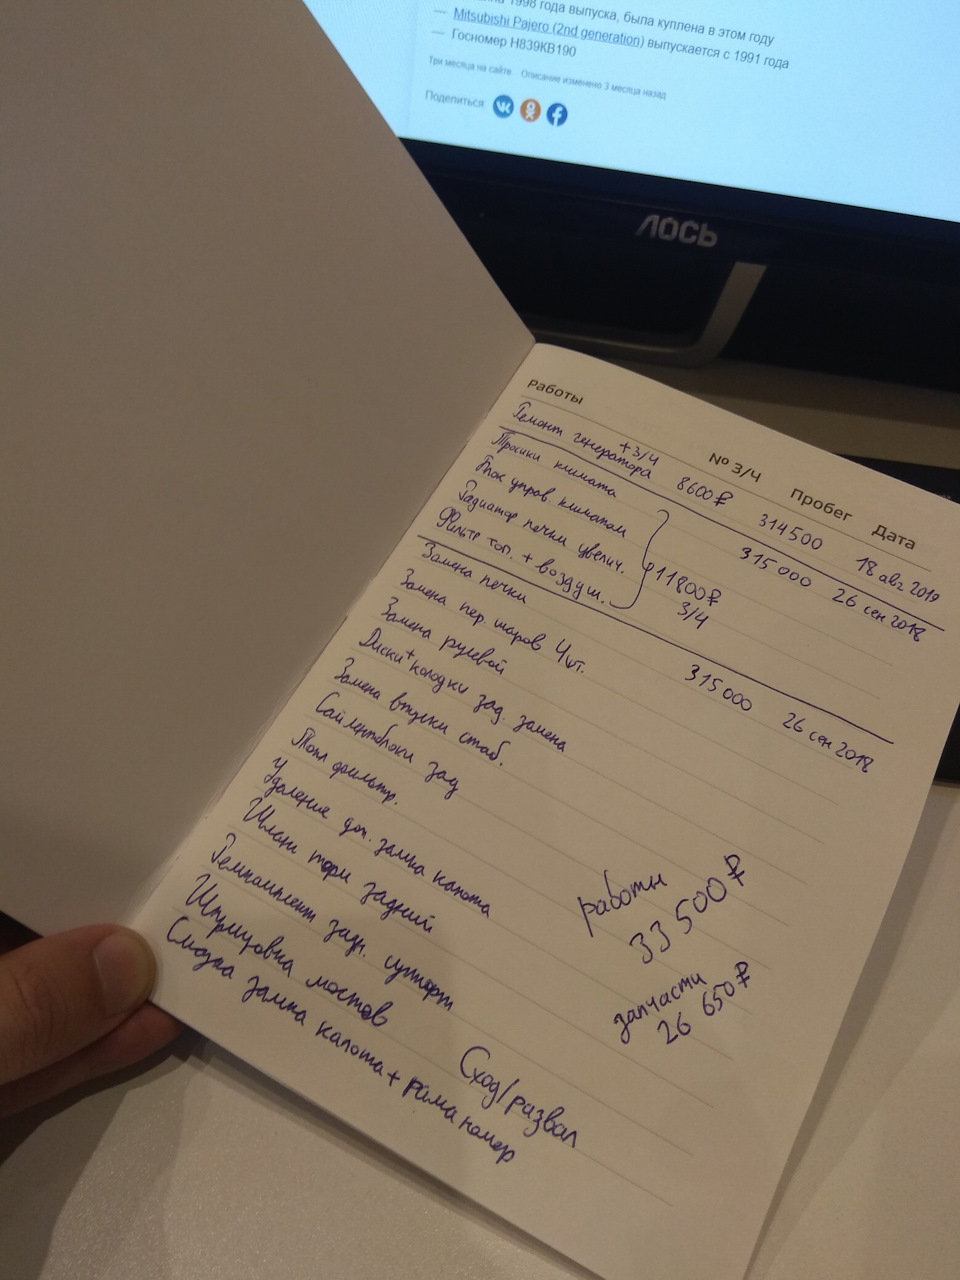 1998 года выпуска, была куплена в этом году
— Mitsubishi Pajero (2nd generation) выпускается с 1991 года
— Госномер Н839КВ190
Три месяца на сайте Описание изменено 3 месяца назад
Поделиться
ЛОСЬ
работы № 3/4 Пробег Дата
Ремонт генератора +3/4 8600₽ 314500 18 авг 2019
Тросики климата 315000 26 сен 2018
Блок управ климатом
Радиатор печки увелич. 11800₽
Фильтр топ. + воздуш. 3/4
Замена печки 315000 26 сен 2018
Замена пер шаров 4шт.
Замена рулевой
Диски+колодки зад замена
Замена втулки стаб.
Сайлентблоки зад
Топл фильтр.
Удаление доп. замка капота
Шланг торм задний
Ремкомплект задн. суппорт
Шприцовка мостов
Смазка замка капота + рама номер
работы
33500₽
запчасти
26 650₽
Сход/развал